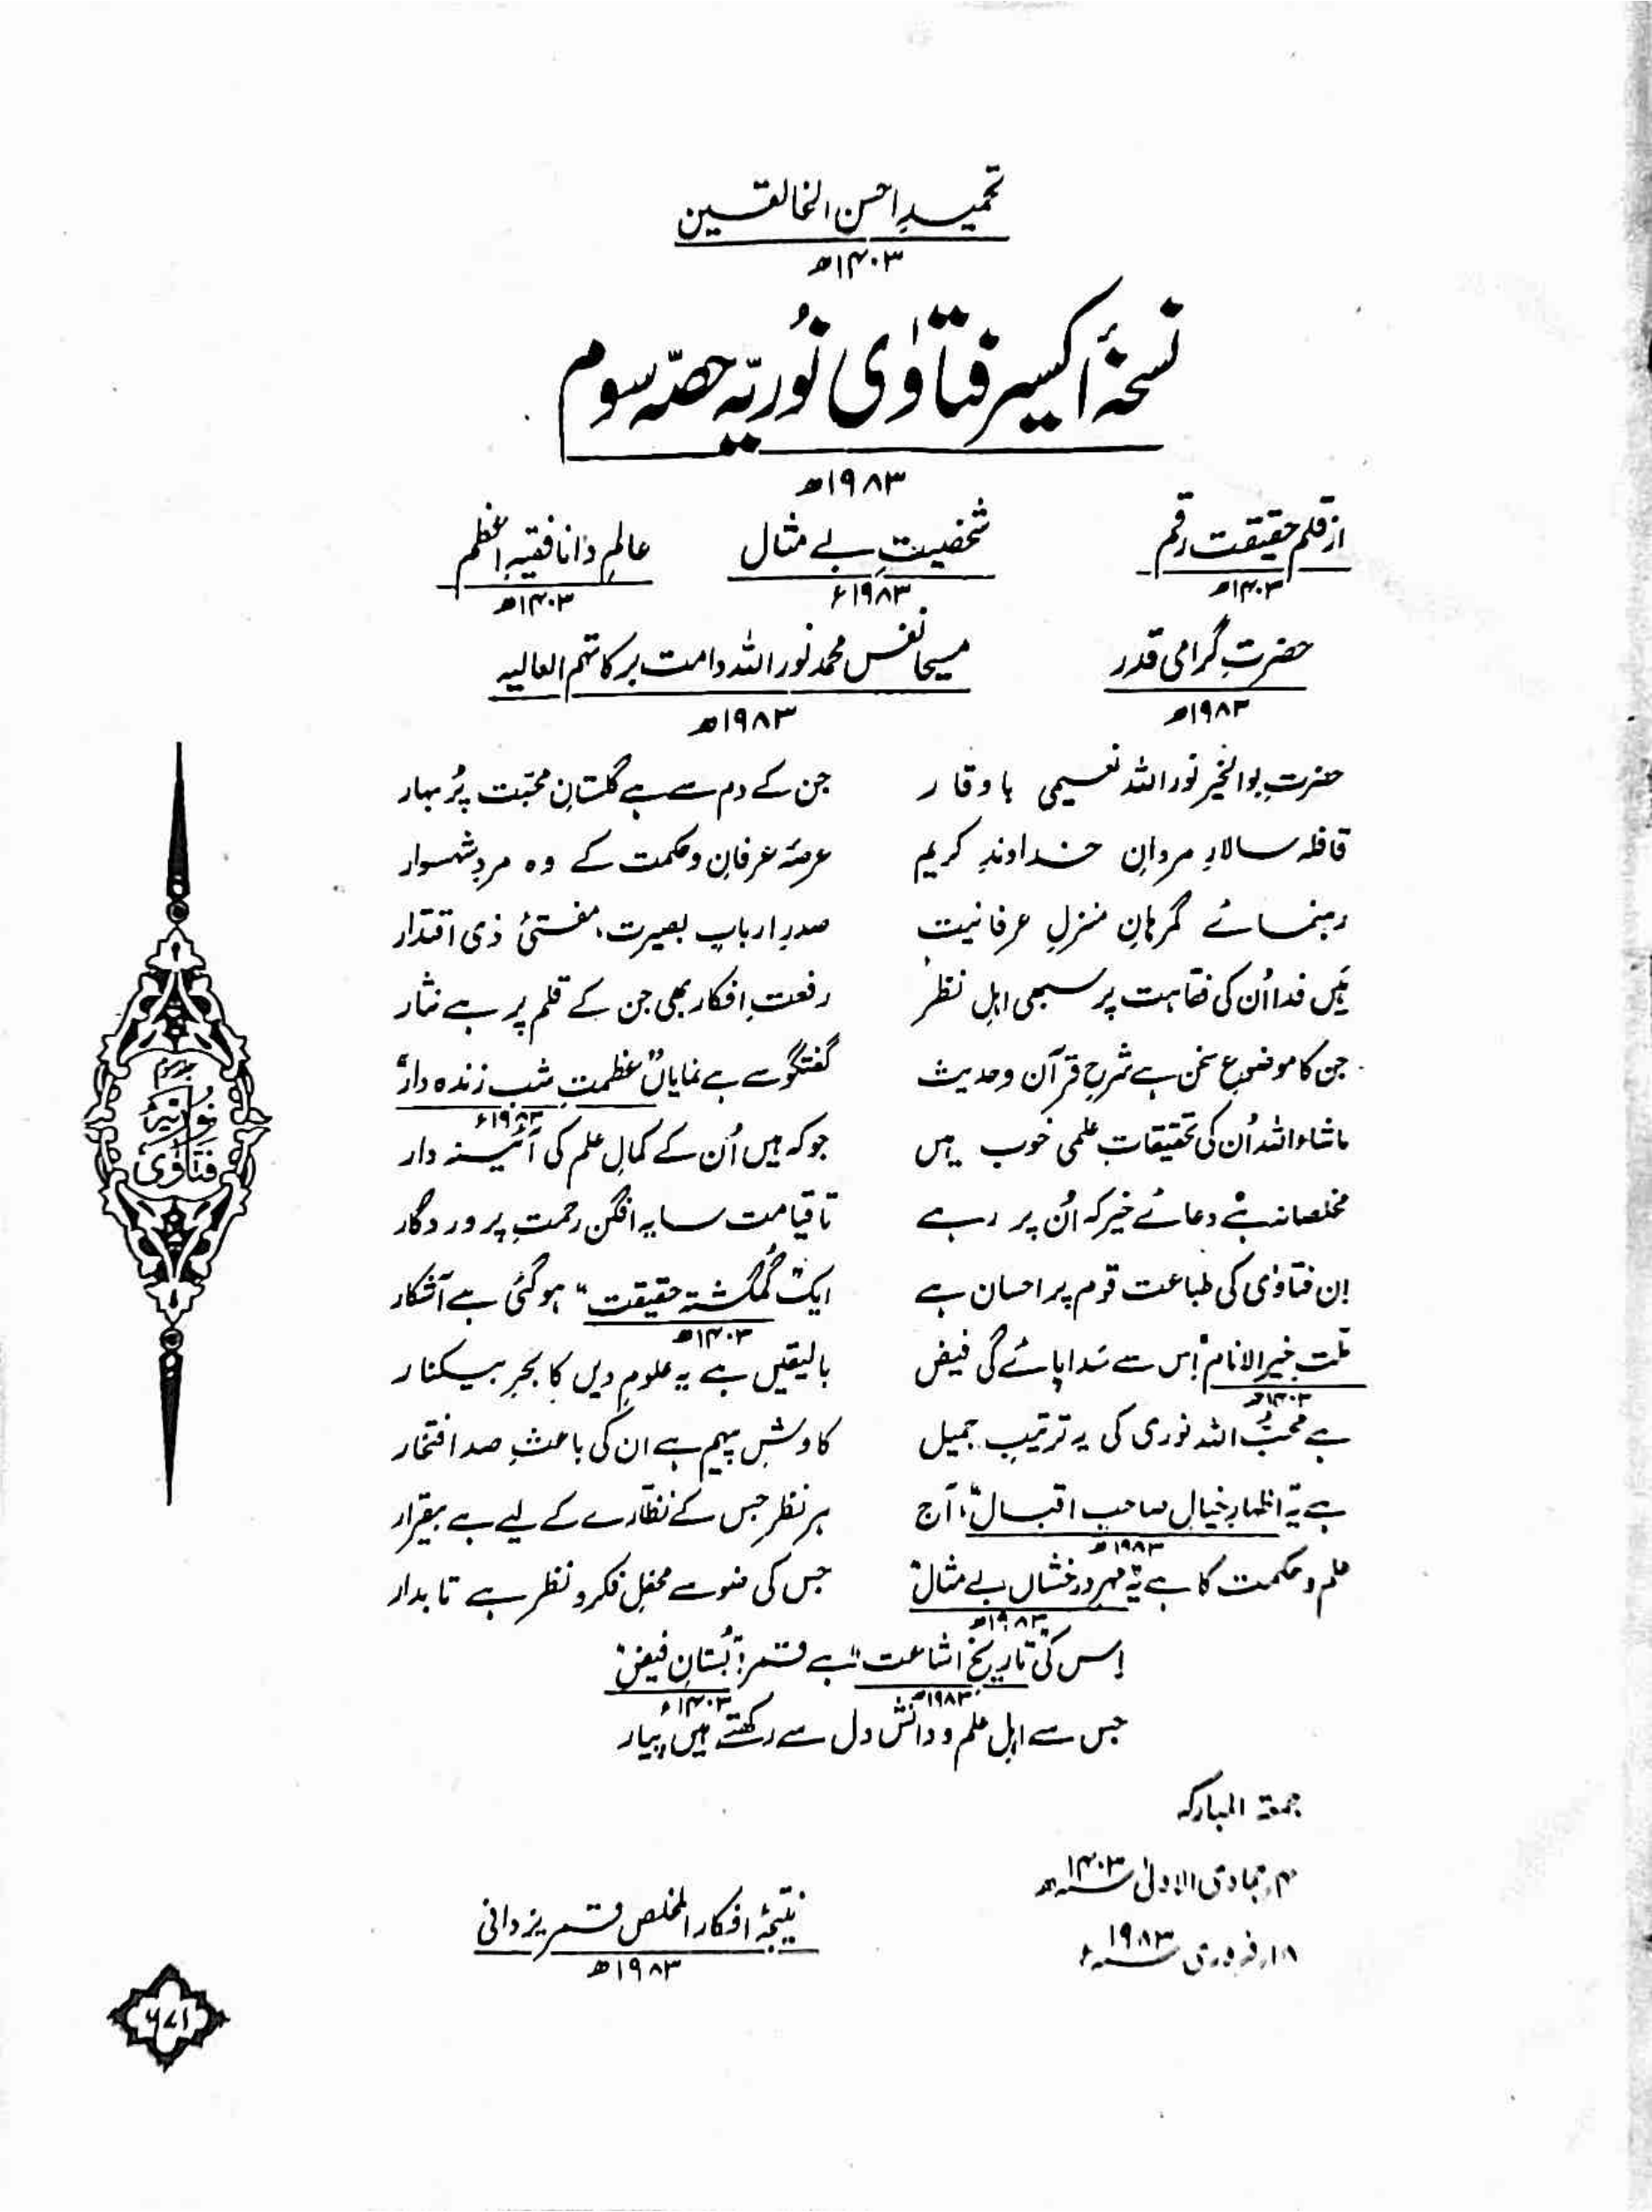 تحمیدِ احسن الخالقین
۱۴۰۳ھ
نسخۂ اکسیر فتاوٰی نُوریّہ حصّہ سوم
۱۹۸۳ھ
از قلمِ حقیقت رقم شخصیتِ بے مثال عالمِ دانا فقیہِ اعظم
۱۴۰۳ھ ۱۹۸۳ء ۱۴۰۳ھ
حضرتِ گرامی قدر مسیحا نفس محمد نور اللہ دامت برکاتہم العالیہ
۱۹۸۳ھ ۱۹۸۳ھ
حضرتِ بوالخیر نور اللہ نعیمی باوقار جن کے دم سے ہے گلستانِ محبّت پُر بہار
قافلہ سالارِ مردانِ خداوندِ کریم عرصۂ عرفان و حکمت کے وہ مردِ شہسوار
رہنمائے گمرہانِ منزلِ عرفانیت صدرِ اربابِ بصیرت، مفتئ ذی اقتدار
ہیں فدا اُن کی فقاہت پر سبھی اہلِ نظر رفعتِ افکار بھی جن کے قلم پر ہے نثار
جن کا موضوعِ سخن ہے شرحِ قرآن و حدیث گفتگو سے ہے نمایاں "عظمتِ شب زندہ دار"
۱۹۸۳ء
ماشاء اللہ اُن کی تحقیقاتِ علمی خوب ہیں جو کہ ہیں اُن کے کمالِ علم کی آئینہ دار
مخلصانہ ہے دعائے خیر کہ اُن پر رہے تا قیامت سایہ افگن رحمتِ پروردگار
اِن فتاوٰی کی طباعت قوم پر احسان ہے ایک "گمگشتہ حقیقت" ہو گئی ہے آشکار
۱۴۰۳ھ
"ملتِ خیر الانام" اِس سے سَدا پائے گی فیض بالیقیں ہے یہ علومِ دیں کا بحرِ بیکنار
۱۴۰۳ھ
ہے محبُّ اللہ نوری کی یہ ترتیبِ جمیل کاوشِ پیہم ہے ان کی باعثِ صد افتخار
ہے یہ "اظہارِ خیالِ صاحبِ اقبال" آج ہر نظر جس کے نظّارے کے لیے ہے بیقرار
۱۹۸۳ھ
علم و حکمت کا ہے یہ "مہرِ درخشاں بے مثال" جس کی ضو سے محفلِ فکر و نظر ہے تابدار
۱۹۸۳ھ
اِس کی "تاریخِ اشاعت" ہے قمر "بُستانِ فیض"
۱۹۸۳ھ ۱۴۰۳ء
جس سے اہلِ علم و دانش دل سے رکھتے ہیں پیار
جمعۃ المبارکہ
۴؍ جمادی الاولیٰ سنہ ۱۴۰۳ھ
۱۸؍ فروری سنہ ۱۹۸۳ء
نتیجۂ افکار المخلص قمر یزدانی
۱۹۸۳ھ
جلد سوم
نُوریّہ
فتاوٰی
۶۷۱